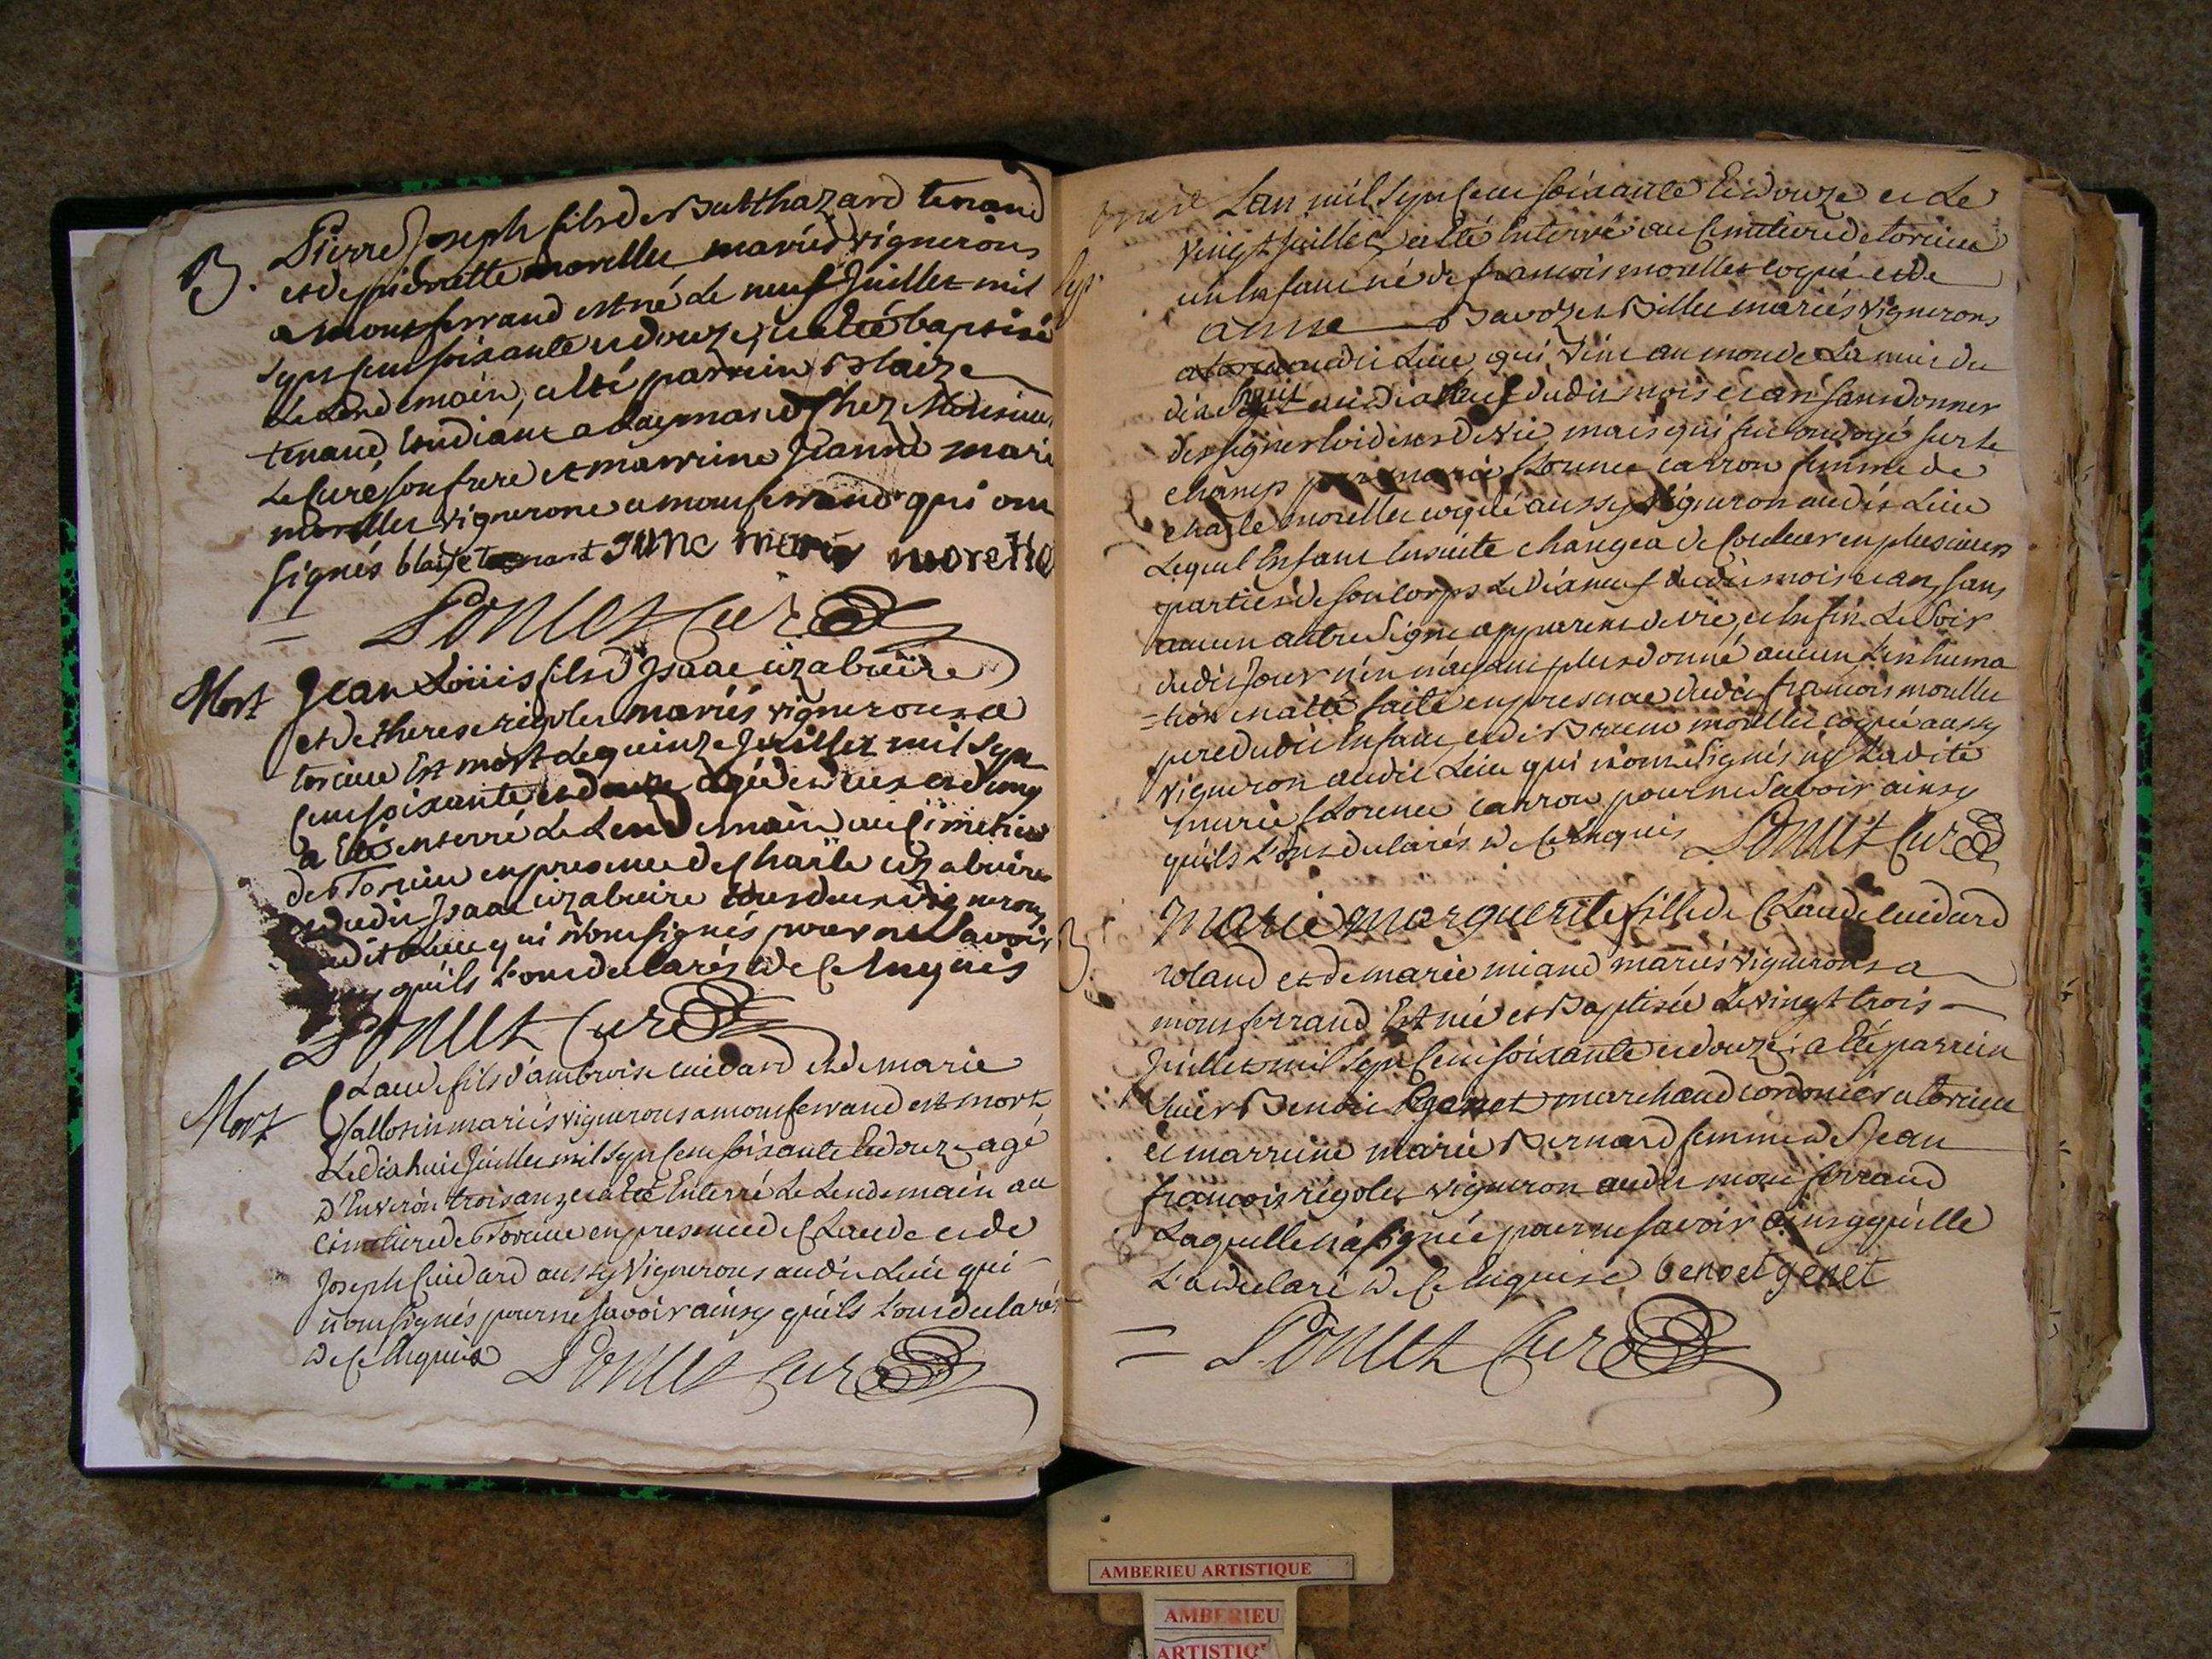 B. Pierre Joseph fils de Balthazard tenand
et de pierrette morellet mariés vignerons
a montferrand est né le neuf Juillet mil
sept cent soixante et douze, et a été baptisé
le Lendemain, a été parrein Blaize
tenand Etudiant a Lagmand chez Monsieur
le Curé son frere et marreine Jeanne marie
morellet vignerone a montferrand qui ont
signés blaise tenant June marie morette
Poncet Curé
Mort Jean Loüis fils d'Isaac
et de therese rigolet mariés vignerons a
torcieu Est mort le quinze Juillet mil sept
cent soixante et douze agé de deux
a été enterré le Lendemain au Cimetiere
de Torcieu en presence de Charle
et dudit Isaac tous deux vignerons
audit Lieu qui n'ont signés pour ne savoir
ainsy qu'ils L'ont declarés de ce Enquis
Poncet Curé
Mort Claude fils d'ambroise cuidard et de marie
mariés vignerons a montferrand est mort
Le dixhuit Juillet mil sept cent soixante et douze agé
d'Environ trois ans et a été Enterré Le Lendemain au
cimetiere de Torcieu en presence de Claude et de
Joseph Cuidard aussy Vignerons audit Lieu qui
n'ont signés pour ne savoir ainsy qu'ils L'ont declarés
de ce Enquis Poncet Curé
Lan mil sept cent soixante et douze et Le
vingt Juillet a été Enterré au cimetiere de torcieu
un Enfant né de francois morellet coqué et de
anne Bavozet Billet mariés vignerons
audit Lieu, qui vint au monde La nuit du
dix huit au dix neuf dudit mois et an sans donner
des signes Evidens de vie, mais qui fut ondoyé sur le
champ par marie florence carron femme de
charle morellet coqué aussy vigneron audit Lieu
Lequel Enfant Ensuite changea de Couleur en plusieurs
parties de son corps Le dixneuf dudit mois et an, sans
aucun autre signe apparent de vie, et Enfin Le soir
dudit Jour n'en ayant plus donné aucun L'inhuma
=tion en a été faite en presence dudit francois morellet
pere dudit Enfant, et de Brunu morellet coqué aussy
vigneron audit Lieu qui n'ont signés ny Ladite
marie florence carron pour ne savoir ainsy
qu'ils L'ont declarés de ce Enquis Poncet Curé
B Marie marguerite fille de Claude cuidard
roland et de marie miand mariés vignerons a
montferrand Est née et Baptisée Le vingt trois
Juillet mil sept cent soixante et douze, a été parrein
sieur Benoit genet marchand cordonier a torcieu
et marreine marie Bernard femme de Jean
francois rigolet vigneron audit montferrand
Laquelle n'a signée pour ne savoir ainsy qu'elle
L'a declaré de ce Enquise benoet genet
Poncet Curé
AMBERIEU ARTISTIQUE
AMBERIEU
ARTISTIQ